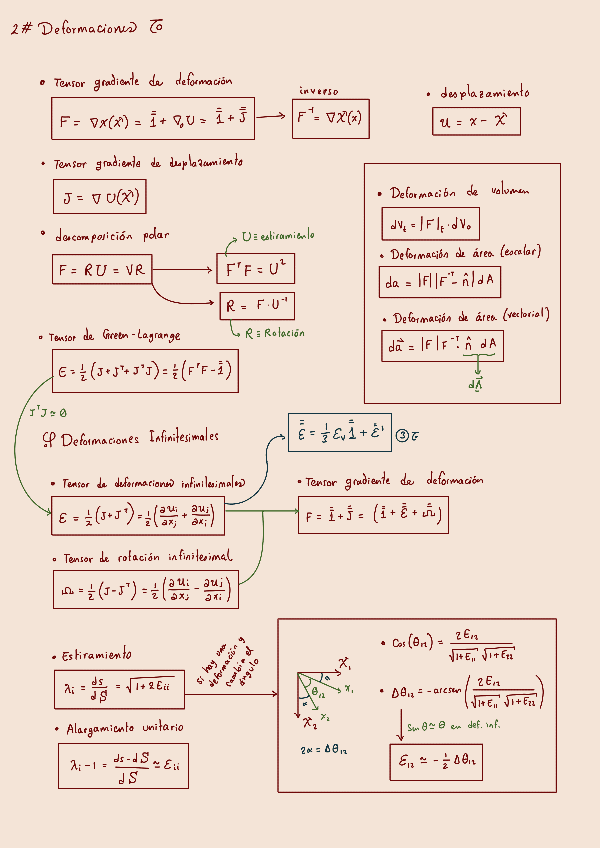 2# Deformaciones
• Tensor gradiente de deformación
F = ∇x(X) = 1̿ + ∇₀U = 1̿ + J̿
inverso
F⁻¹ = ∇X(x)
• desplazamiento
u = x - X
• Tensor gradiente de desplazamiento
J = ∇U(X)
• descomposición polar
F = RU = VR
U ≡ estiramiento
FᵀF = U²
R = F·U⁻¹
R ≡ Rotación
• Deformación de volumen
dVₜ = |F|ₜ · dV₀
• Deformación de área (escalar)
da = |F||F⁻ᵀ · n̂| dA
• Deformación de área (vectorial)
da⃗ = |F| F⁻ᵀ · n̂ dA
dA⃗
• Tensor de Green-Lagrange
E = 1/2 (J + Jᵀ + JᵀJ) = 1/2 (FᵀF - 1̿)
JᵀJ ≃ 0
Deformaciones Infinitesimales
ε̿ = 1/3 εᵥ 1̿ + ε̿' ③
• Tensor de deformaciones infinitesimales
ε = 1/2 (J + Jᵀ) = 1/2 (∂uᵢ/∂xⱼ + ∂uⱼ/∂xᵢ)
• Tensor gradiente de deformación
F = 1̿ + J̿ = (1̿ + ε̿ + Ω̿)
• Tensor de rotación infinitesimal
Ω = 1/2 (J - Jᵀ) = 1/2 (∂uᵢ/∂xⱼ - ∂uⱼ/∂xᵢ)
• Estiramiento
λᵢ = ds/dS = √(1 + 2Eᵢᵢ)
si hay una
deformación y
cambia el
ángulo
• Alargamiento unitario
λᵢ - 1 = (ds - dS)/dS ≃ εᵢᵢ
X⃗₁
α
x₁
θ₁₂
α
x₂
X⃗₂
2α = Δθ₁₂
• Cos(θ₁₂) = 2E₁₂ / (√(1+E₁₁) √(1+E₂₂))
• Δθ₁₂ = -arcsen(2E₁₂ / (√(1+E₁₁) √(1+E₂₂)))
Sin θ ≃ θ en def. inf.
E₁₂ ≃ - 1/2 Δθ₁₂